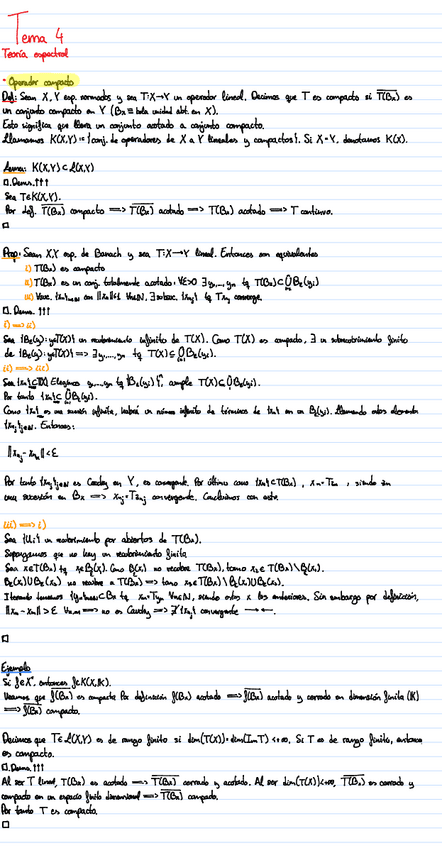 Tema 4
Teoría espectral
- Operador compacto
Def: Sean X, Y esp. normados y sea T: X→Y un operador lineal. Decimos que T es compacto si \overline{T(Bx)} es
un conjunto compacto en Y (Bx ≡ bola unidad abt. en X).
Esto significa que lleva un conjunto acotado a conjunto compacto.
Llamamos K(X,Y) := {conj. de operadores de X a Y lineales y compactos}. Si X=Y, denotamos K(X).
Lema: K(X,Y) ⊂ L(X,Y)
□. Dems. !!!
Sea T∈K(X,Y).
Por def. \overline{T(Bx)} compacto ⟹ \overline{T(Bx)} acotado ⟹ T(Bx) acotado ⟹ T continuo.
□
Prop: Sean X,Y esp. de Banach y sea T: X→Y lineal. Entonces son equivalentes
i) T(Bx) es compacto
ii) T(Bx) es un conj. totalmente acotado: ∀ε>0 ∃ y₁,...,yₙ tq T(Bx)⊂∪Bε(yi)
iii)
□. Dems. !!!
i) ⟹ ii)
Sea {Bε(y): y∈T(X)} un recubrimiento infinito de T(X). Como T(X) es compacto, ∃ un subrecubrimiento finito
de {Bε(y): y∈T(X)} ⟹ ∃ y₁,...,yₙ tq T(X) ⊆ ∪Bε(yi).
ii) ⟹ iii)
Por tanto
‖xnj - xnk‖ < ε
Por tanto {xnj}j∈ℕ es Cauchy en Y, es convergente. Por último como {xn}⊂T(Bx), xn=Tzn, siendo zn
una sucesión en Bx ⟹ xnj=Tznj convergente. Concluimos con esto.
iii) ⟹ i)
Sea {Ui} un recubrimiento por abiertos de T(Bx).
Supongamos que no hay un recubrimiento finito
Sea x₁∈T(Bx) tq x₁∈Bε(x₁). Como Bε(x₁) no recubre T(Bx), tomo x₂∈T(Bx)\Bε(x₁).
Bε(x₁)∪Bε(x₂) no recubre a T(Bx) ⟹ tomo x₃∈T(Bx)\Bε(x₁)∪Bε(x₂).
Iterando tenemos {yn}n∈ℕ⊂Bx tq xn=Tyn ∀n∈ℕ, siendo estos x los anteriores. Sin embargo por definición,
‖xn - xm‖ > ε ∀n,m ⟹ no es Cauchy ⟹ ∄ {xnj} convergente →←.
□
Ejemplo
Si f∈X*, entonces f∈K(X,𝕂).
Veamos que f(Bx) es compacto. Por definición f(Bx) acotado ⟹ \overline{f(Bx)} acotado y cerrado en dimensión finita (𝕂)
⟹ \overline{f(Bx)} compacto.
Decimos que T∈L(X,Y) es de rango finito si dim(T(X))=dim(Im T) <+∞. Si T es de rango finito, entonces
es compacto.
□. Dems. !!!
Al ser T lineal, T(Bx) es acotado ⟹ \overline{T(Bx)} cerrado y acotado. Al ser dim(T(X))<+∞, \overline{T(Bx)} es cerrado y
compacto en un espacio finito dimensional ⟹ \overline{T(Bx)} compacto.
Por tanto T es compacto.
□